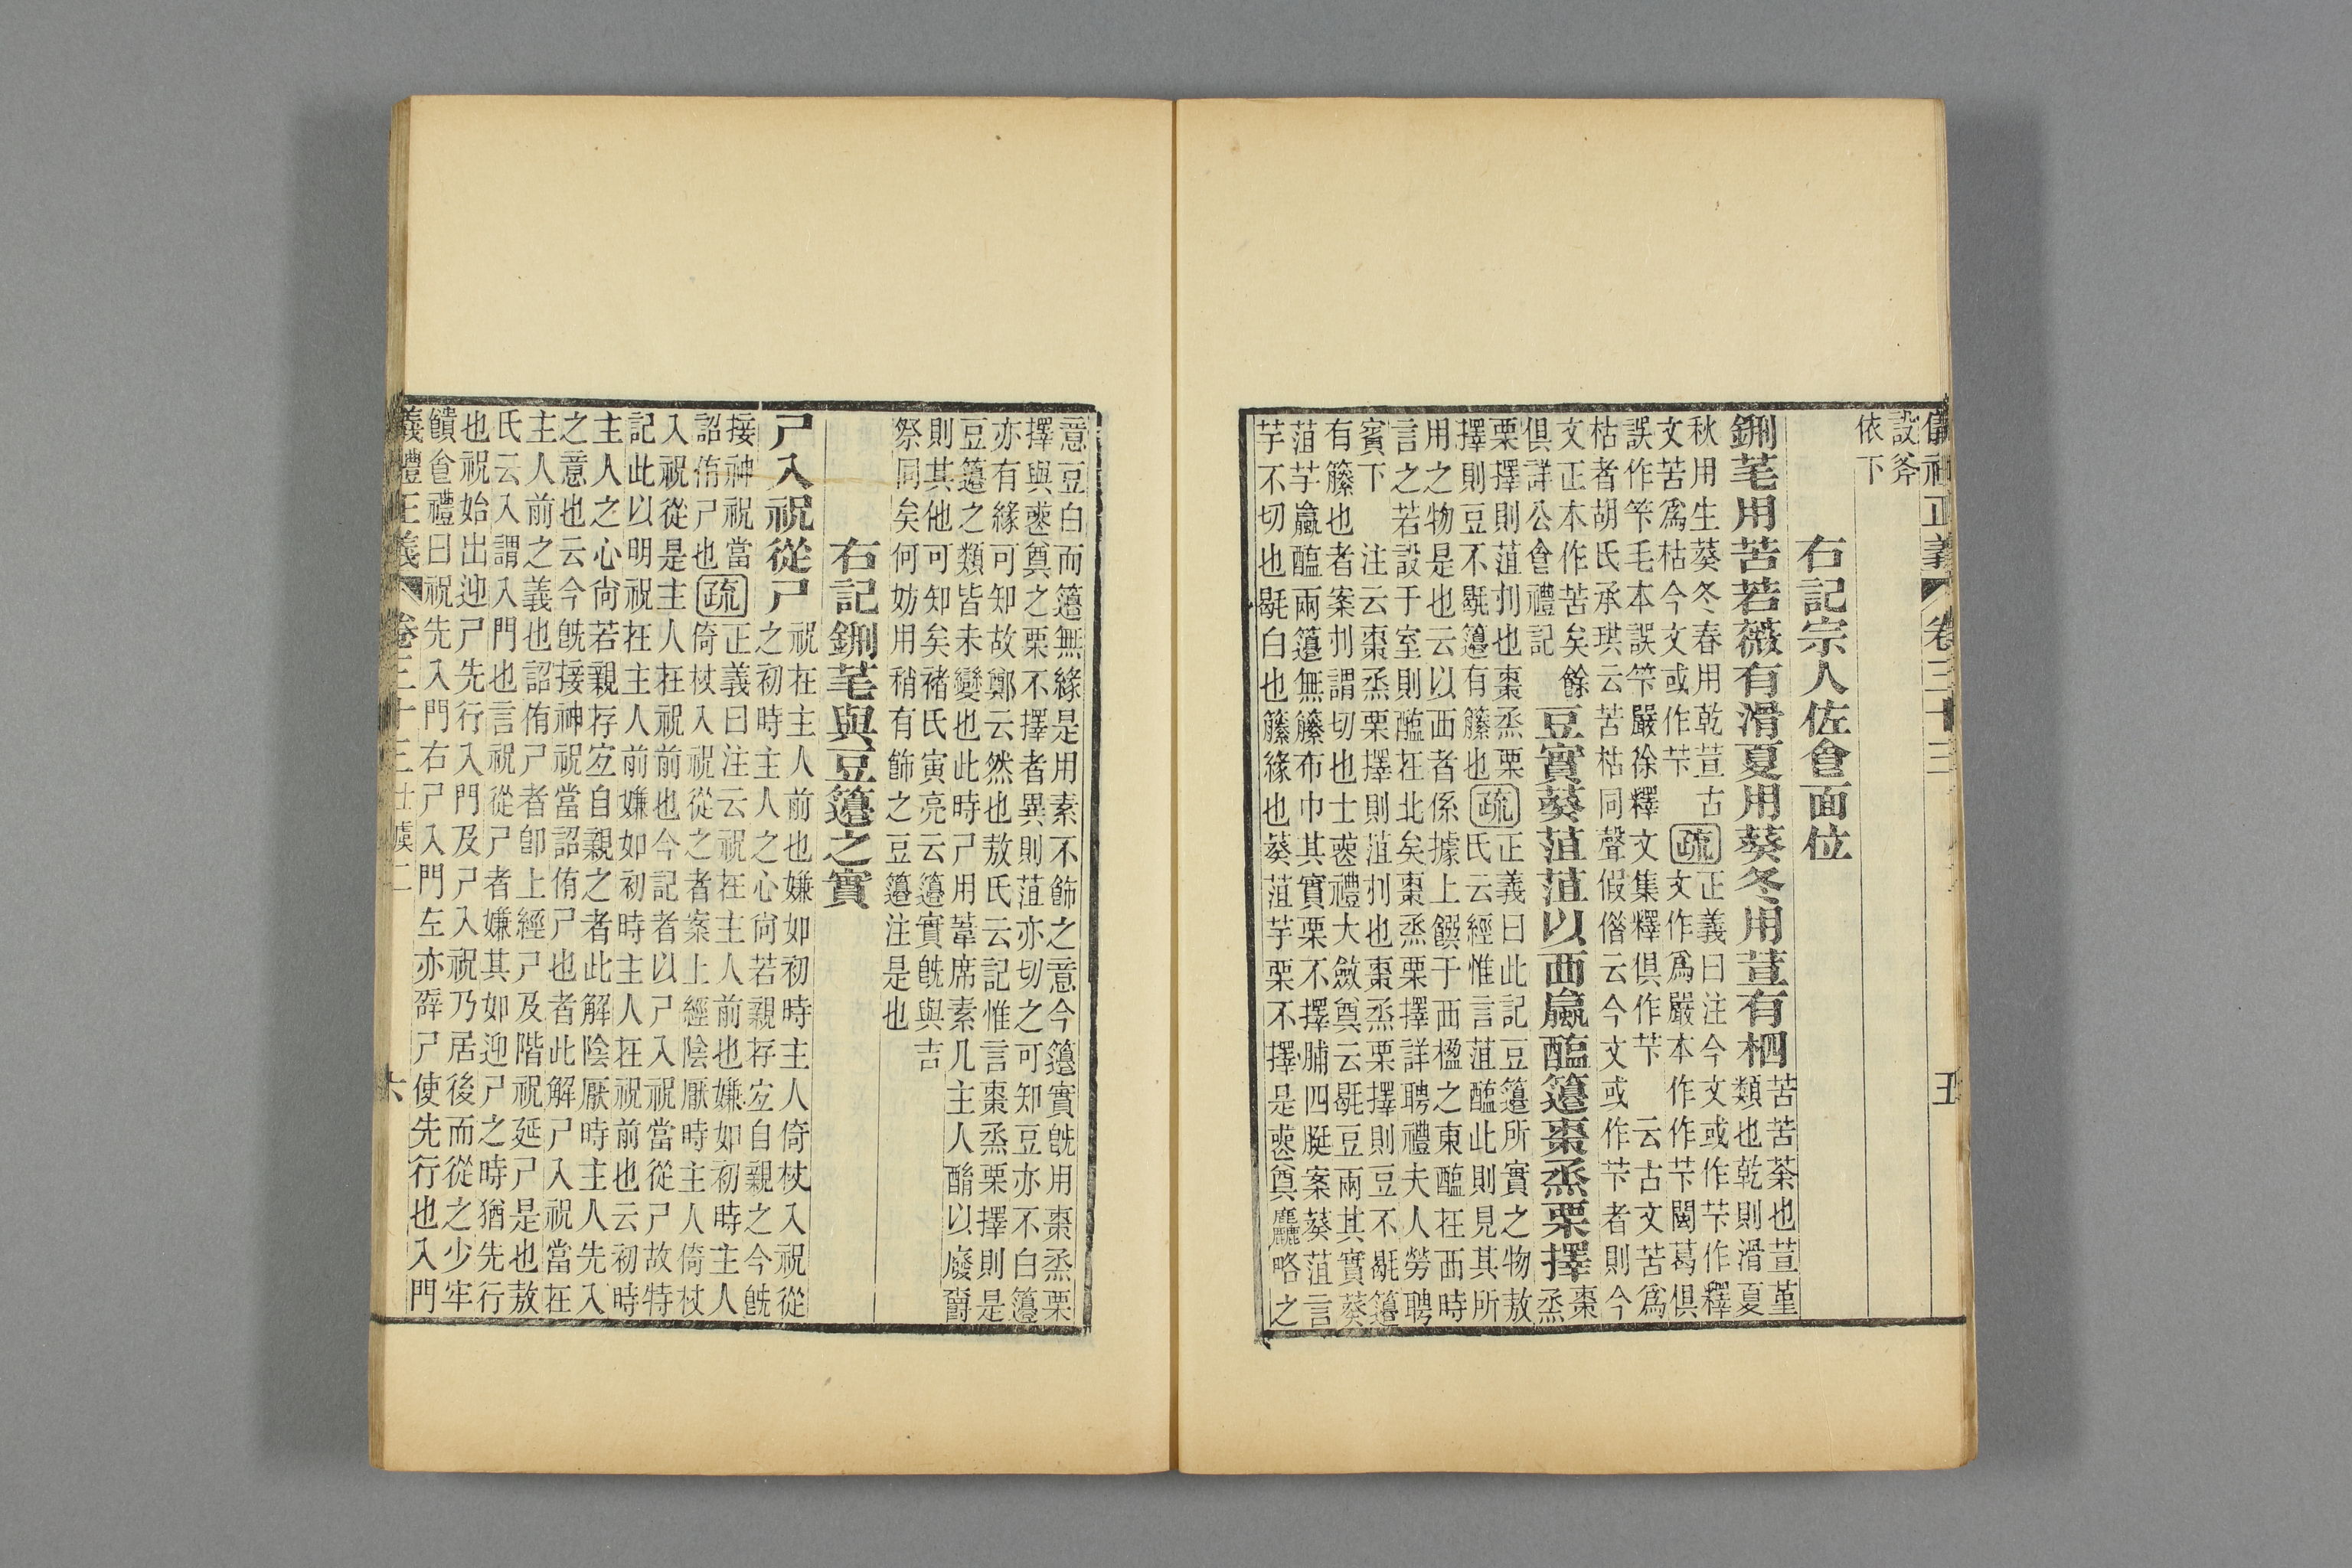 儀禮正義 卷三十三 五
設斧
依下
右記宗人佐會面位
鉶芼用苦若薇有滑夏用葵冬用荁有柶
苦苦荼也荁堇
類也乾則滑夏
秋用生葵冬春用乾荁古
文苦爲枯今文或作芐
疏
正義曰注今文或作芐作釋
文作爲嚴本作作芐閩葛俱
誤作笇毛本誤笇嚴徐釋文集釋俱作芐云古文苦爲
枯者胡氏承珙云苦枯同聲假僭云今文或作芐者則今
文正本作苦矣餘
俱詳公會禮記
豆實葵菹菹以西蠃醢籩棗烝栗擇
棗烝
栗擇則菹刌也棗烝栗
擇則豆不毼籩有籐也
疏
正義曰此記豆籩所實之物敖
氏云經惟言菹醢此則見其所
用之物是也云以西者係據上饌于西楹之東醢在西時
言之若設于室則醢在北矣棗烝栗擇詳聘禮夫人勞聘
賓下 注云棗烝栗擇則菹刌也棗烝栗擇則豆不毼籩
有籐也者案刌謂切也士喪禮大斂奠云毼豆兩其實葵
菹芋蠃醢兩籩無籐布巾其實栗不擇脯四脡案葵菹言
芋不切也毼白也籐緣也葵菹芋栗不擇是喪奠麤略之
意豆白而籩無緣是用素不飾之意今籩實旣用棗烝栗
擇與喪奠之栗不擇者異則菹亦切之可知豆亦不白籩
亦有緣可知故鄭云然也敖氏云記惟言棗烝栗擇則是
豆籩之類皆未變也此時尸用葦席素几主人酳以廢爵
則其他可知矣褚氏寅亮云籩實旣與吉
祭同矣何妨用稍有飾之豆籩注是也
右記鉶芼與豆籩之實
尸入祝從尸
祝在主人前也嫌如初時主人倚杖入祝從
之初時主人之心尙若親存宓自親之今旣
接神祝當
詔侑尸也
疏
正義曰注云祝在主人前也嫌如初時主人
倚杖入祝從之者案上經陰厭時主人倚杖
入祝從是主人在祝前也今記者以尸入祝當從尸故特
記此以明祝在主人前嫌如初時主人在祝前也云初時
主人之心尙若親存宓自親之者此解陰厭時主人先入
之意也云今旣接神祝當詔侑尸也者此解尸入祝當在
主人前之義也詔侑尸者卽上經尸及階祝延尸是也敖
氏云入謂入門也言祝從尸者嫌其如迎尸之時猶先行
也祝始出迎尸先行入門及尸入祝乃居後而從之少牢
饋會禮曰祝先入門右尸入門左亦辟尸使先行也入門
義禮正義 卷三十三 士虞二 六